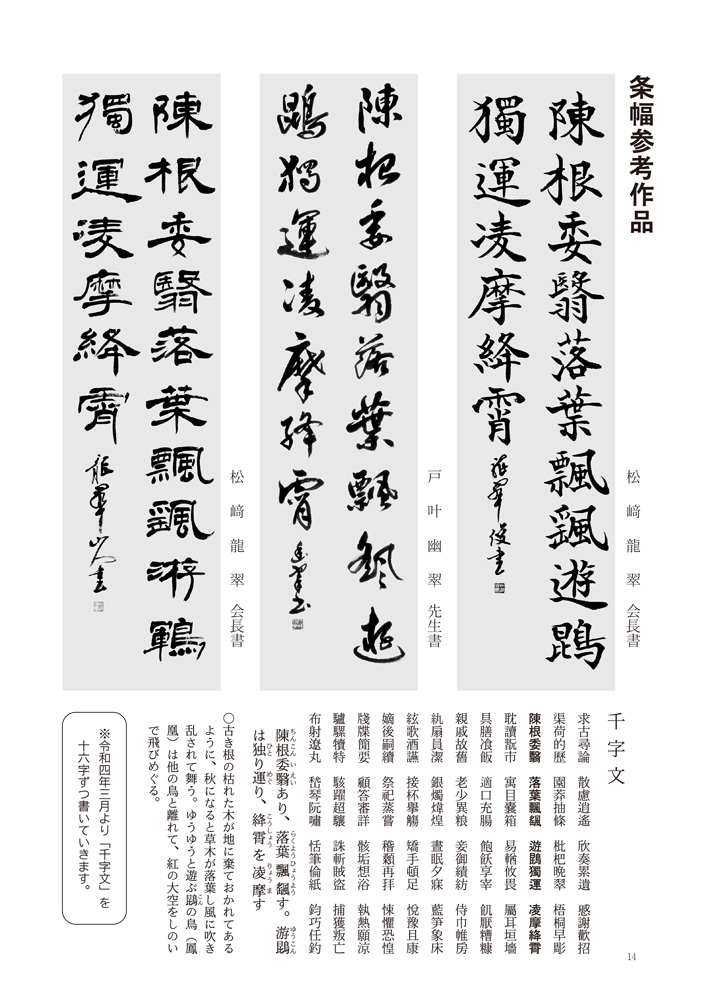 条幅参考作品
松﨑龍翠 会長書
陳根委翳落葉飄颻遊鵾
獨運凌摩絳霄 龍翠俊書
戸叶幽翠 先生書
陳根委翳落葉飄颻遊
鵾獨運凌摩絳霄 幽翠書
松﨑龍翠 会長書
陳根委翳落葉飄颻游鵾
獨運凌摩絳霄 龍翠山人書
千字文
求古尋論 散慮逍遙 欣奏累遣 感謝歡招
渠荷的歷 園莽抽條 枇杷晩翠 梧桐早彫
陳根委翳 落葉飄颻 遊鵾獨運 凌摩絳霄
耽讀翫市 寓目囊箱 易輶攸畏 屬耳垣墻
具膳飡飯 適口充腸 飽飫享宰 飢厭糟糠
親戚故舊 老少異粮 妾御績紡 侍巾帷房
紈扇員潔 銀燭煒煌 晝眠夕寐 藍笋象床
絃歌酒讌 接杯擧觴 矯手頓足 悅豫且康
嫡後嗣續 祭祀蒸嘗 稽顙再拝 悚懼恐惶
牋牒簡要 顧答審詳 骸垢想浴 執熱願涼
驢騾犢特 駭躍超驤 誅斬賊盜 捕獲叛亡
布射遼丸 嵆琴阮嘯 恬筆倫紙 鈞巧任釣
陳根委翳あり、落葉飄颻す。游鵾
ちんこんいえい らくようひょうよう ゆうこん
は独り運り、絳霄を凌摩す
ひと めぐ こうしょう りょうま
〇古き根の枯れた木が地に棄ておかれてある
ように、秋になると草木が落葉し風に吹き
乱されて舞う。ゆうゆうと遊ぶ鵾の鳥（鳳
こん
凰）は他の鳥と離れて、紅の大空をしのい
で飛びめぐる。
※令和四年三月より「千字文」を
十六字ずつ書いていきます。
14